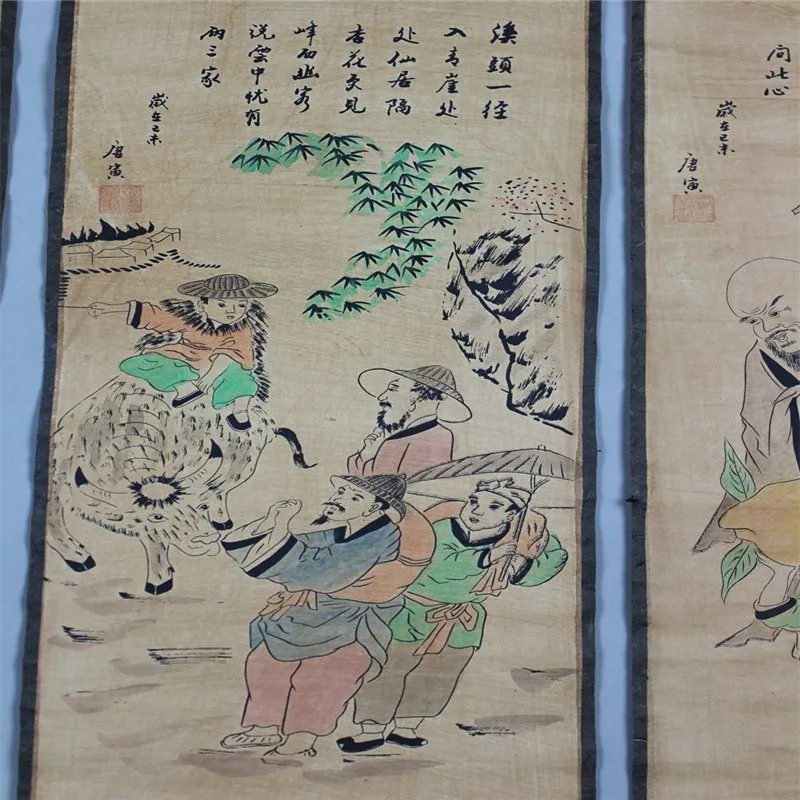 溪頭一徑
入青崖处
处仙居隔
杏花更見
峰西幽客
说雲中忧有
兩三家
歲在己未
唐寅
同此心
歲在己未
唐寅